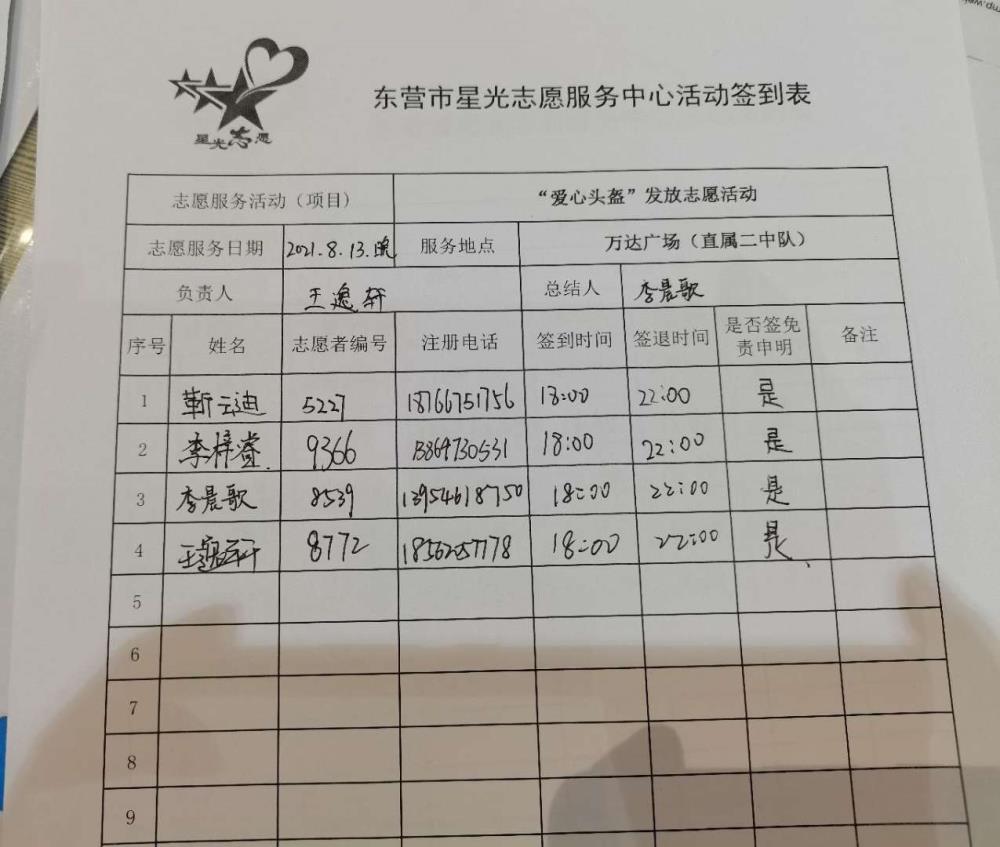 星光志愿
东营市星光志愿服务中心活动签到表
志愿服务活动（项目） “爱心头盔”发放志愿活动
志愿服务日期 2021.8.13.晚 服务地点 万达广场（直属二中队）
负责人 王逸轩 总结人 李晨歌
序号 姓名 志愿者编号 注册电话 签到时间 签退时间 是否签免责申明 备注
1 靳云迪 5227 18766751756 18:00 22:00 是
2 李梓萱 9366 13864730531 18:00 22:00 是
3 李晨歌 8539 13954618750 18:00 22:00 是
4 王逸轩 8772 18562057178 18:00 22:00 是
5
6
7
8
9